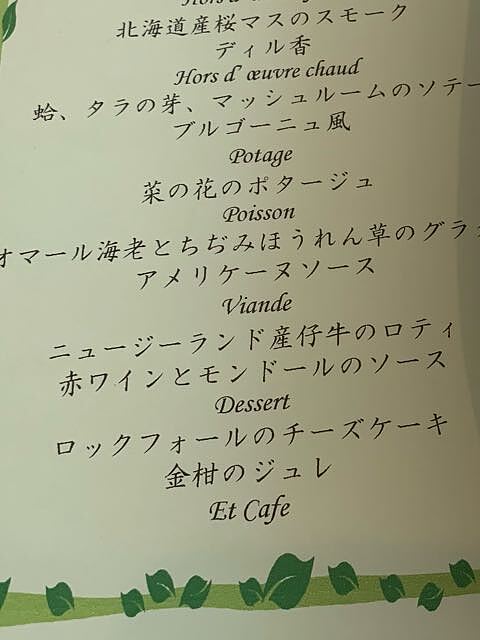 Hors d'
北海道産桜マスのスモーク
ディル香
Hors d' œuvre chaud
蛤、タラの芽、マッシュルームのソテー
ブルゴーニュ風
Potage
菜の花のポタージュ
Poisson
オマール海老とちぢみほうれん草のグラ
アメリケーヌソース
Viande
ニュージーランド産仔牛のロティ
赤ワインとモンドールのソース
Dessert
ロックフォールのチーズケーキ
金柑のジュレ
Et Cafe